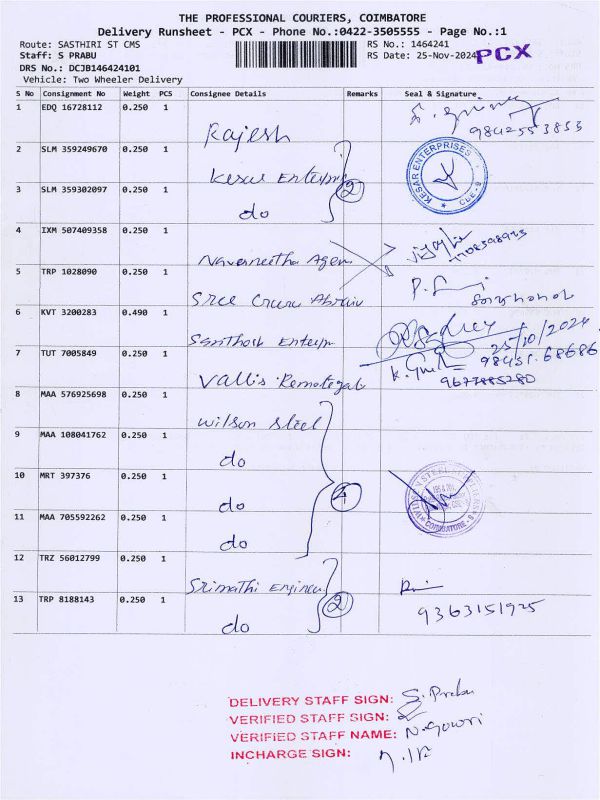 THE PROFESSIONAL COURIERS, COIMBATORE
Delivery Runsheet - PCX - Phone No.:0422-3505555 - Page No.:1
Route: SASTHIRI ST CMS RS No.: 1464241
Staff: S PRABU RS Date: 25-Nov-2024 PCX
DRS No.: DCJB146424101
Vehicle: Two Wheeler Delivery
S No Consignment No Weight PCS Consignee Details Remarks Seal & Signature
1 EDQ 16728112 0.250 1 Rajesh 9842553853
2 SLM 359249670 0.250 1 Kesar KESAR ENTERPRISES CBE-8
3 SLM 359302097 0.250 1 do 2
4 IXM 507409358 0.250 1 Navaneetha Agen
5 TRP 1028090 0.250 1 Sree Guru
6 KVT 3200283 0.490 1 Santhosh Enterp 25/10/2024
7 TUT 7005849 0.250 1 Vallis 98431.68686
9677885280
8 MAA 576925698 0.250 1 Wilson Steel
9 MAA 108041762 0.250 1 do
10 MRT 397376 0.250 1 do 4 COIMBATORE
11 MAA 705592262 0.250 1 do
12 TRZ 56012799 0.250 1 Srimathi Engineer
13 TRP 8188143 0.250 1 do 2 9363151925
DELIVERY STAFF SIGN: S. Prabu
VERIFIED STAFF SIGN:
VERIFIED STAFF NAME: N. Gowri
INCHARGE SIGN: